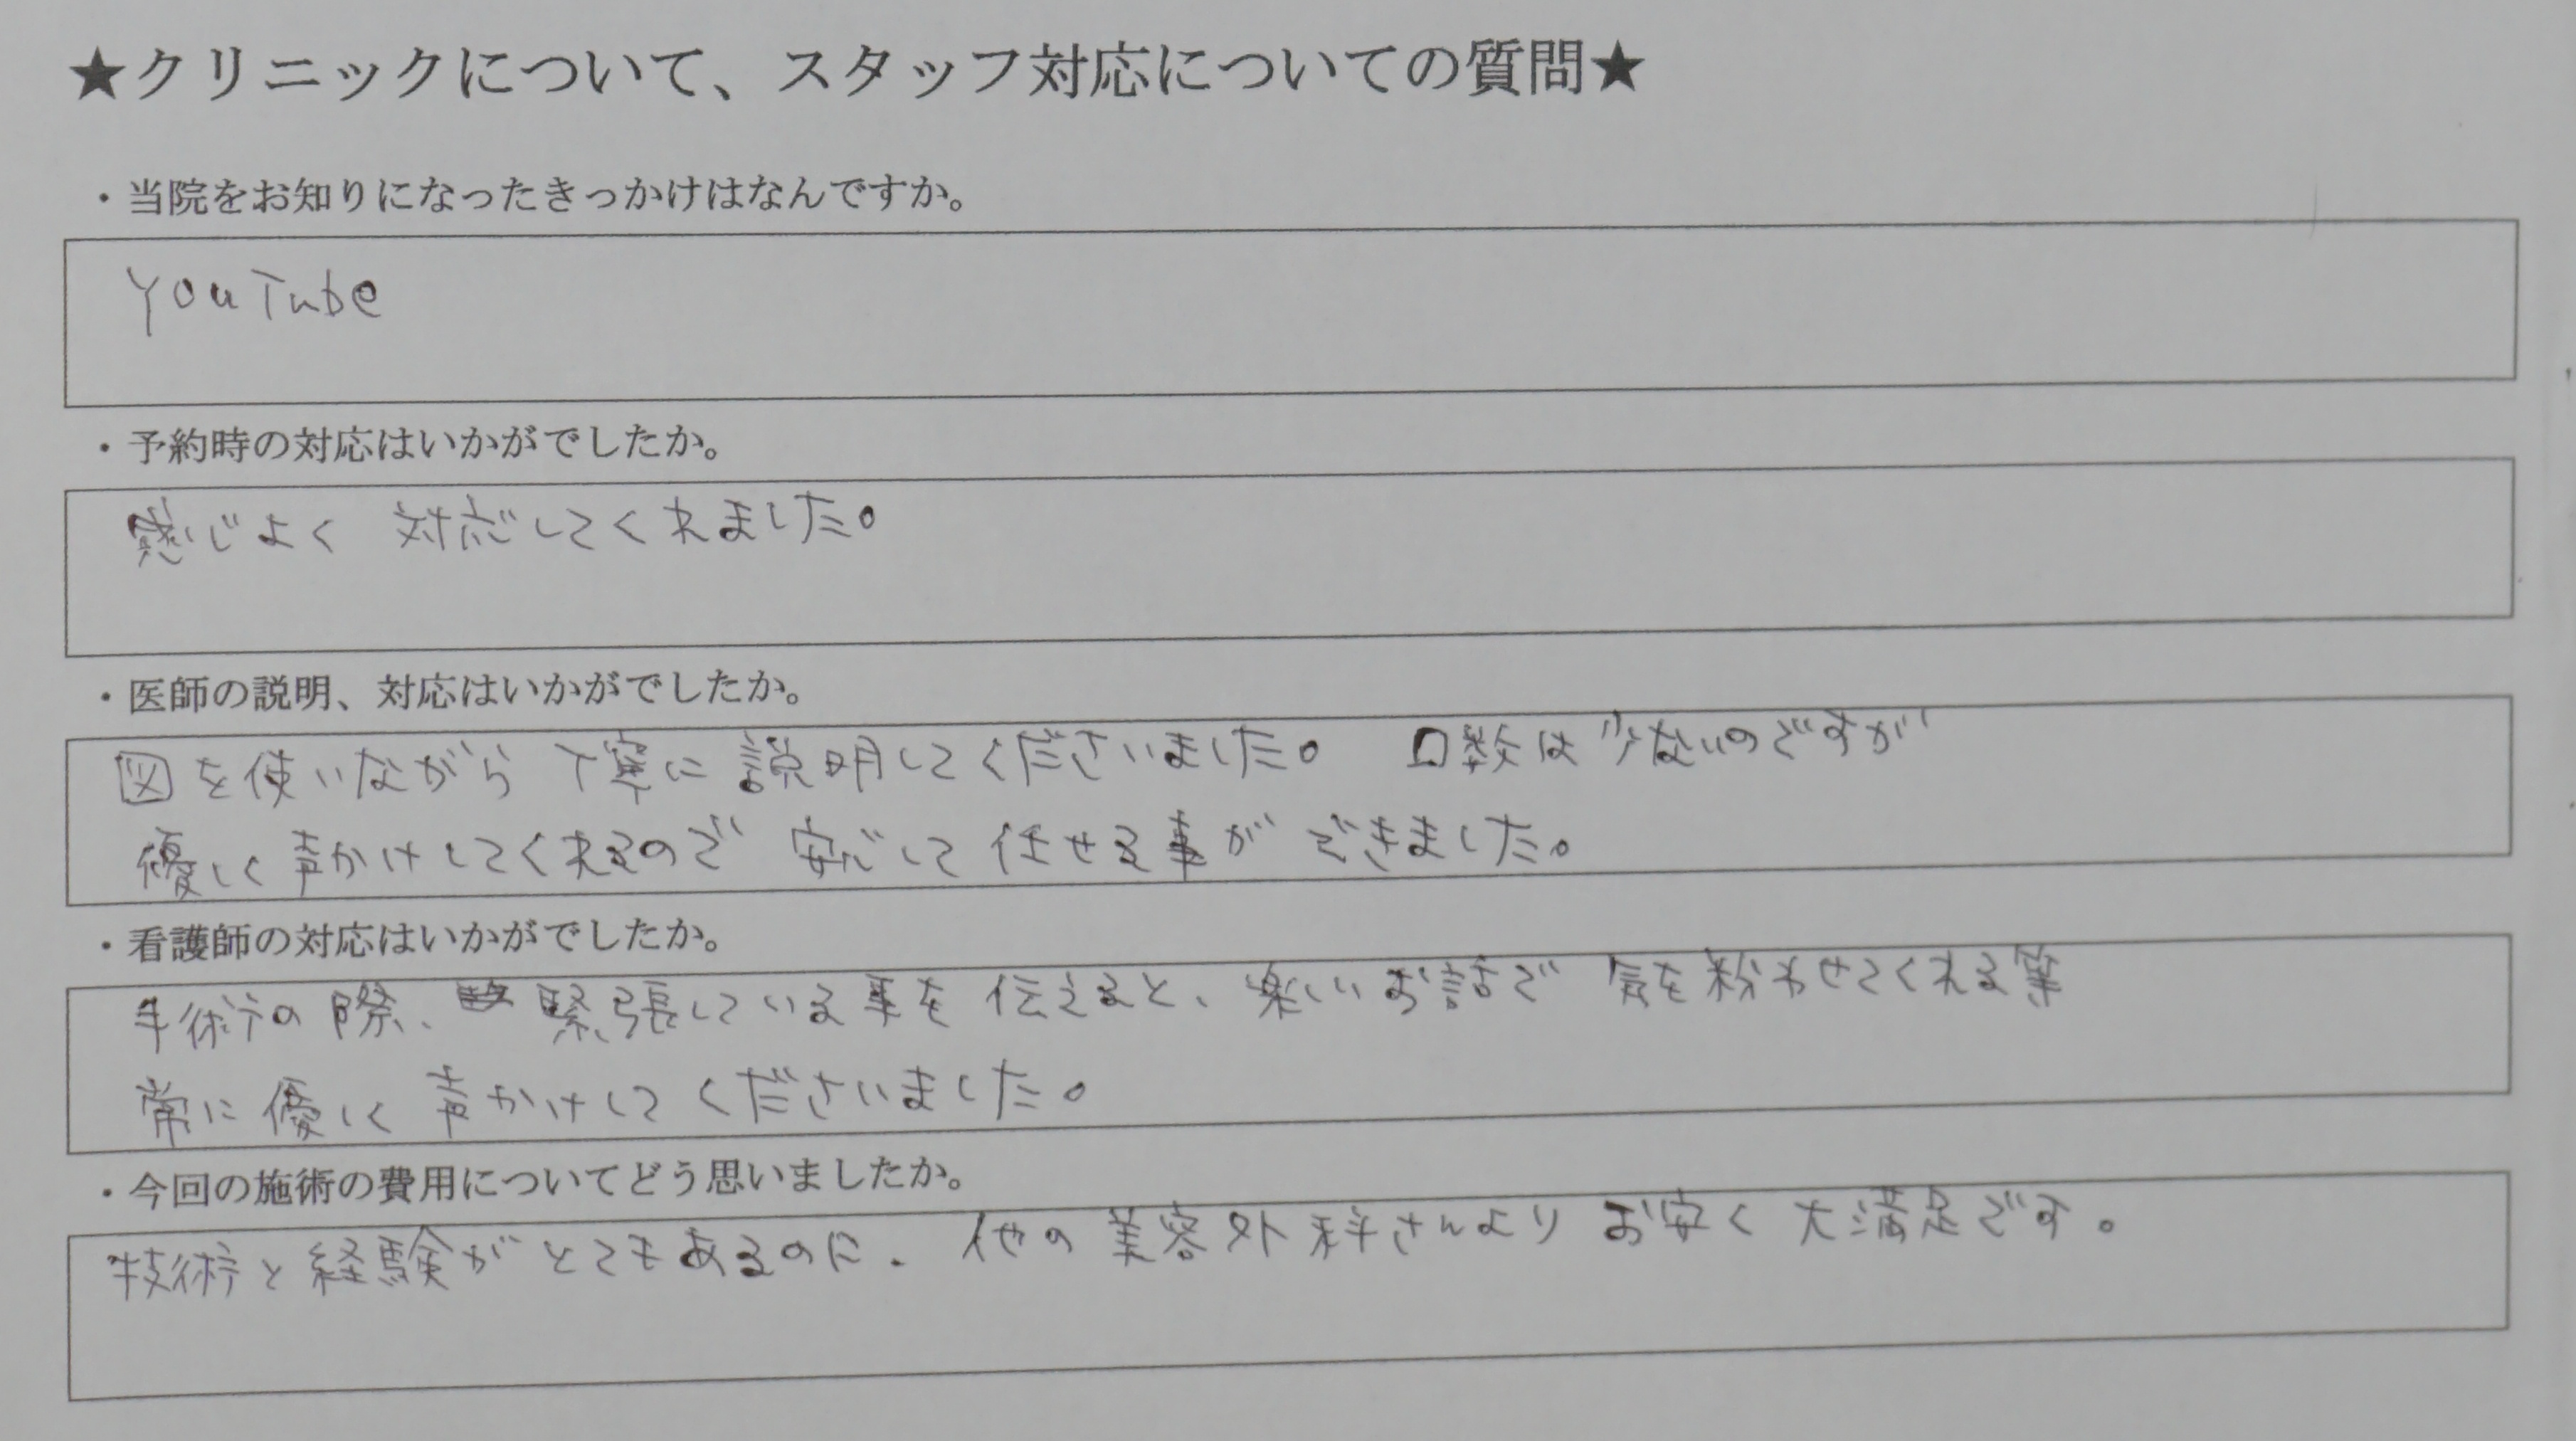 ★クリニックについて、スタッフ対応についての質問★
・当院をお知りになったきっかけはなんですか。
YouTube
・予約時の対応はいかがでしたか。
感じよく 対応してくれました。
・医師の説明、対応はいかがでしたか。
図を使いながら 丁寧に 説明してくださいました。 口数は少ないのですが
優しく声かけしてくれるので 安心して 任せる事が できました。
・看護師の対応はいかがでしたか。
手術の際、緊張している事を 伝えると、楽しいお話で 気を紛わせてくれる等
常に優しく 声かけして くださいました。
・今回の施術の費用についてどう思いましたか。
技術と経験がとてもあるのに、他の美容外科さんより お安く 大満足です。